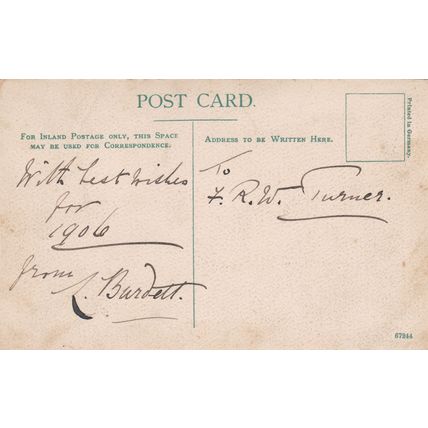 POST CARD.
FOR INLAND POSTAGE ONLY, THIS SPACE
MAY BE USED FOR CORRESPONDENCE.
ADDRESS TO BE WRITTEN HERE.
Printed in Germany.
With best wishes
for
1906
from
L. Burdett.
To
F. R. W. Turner.
67244